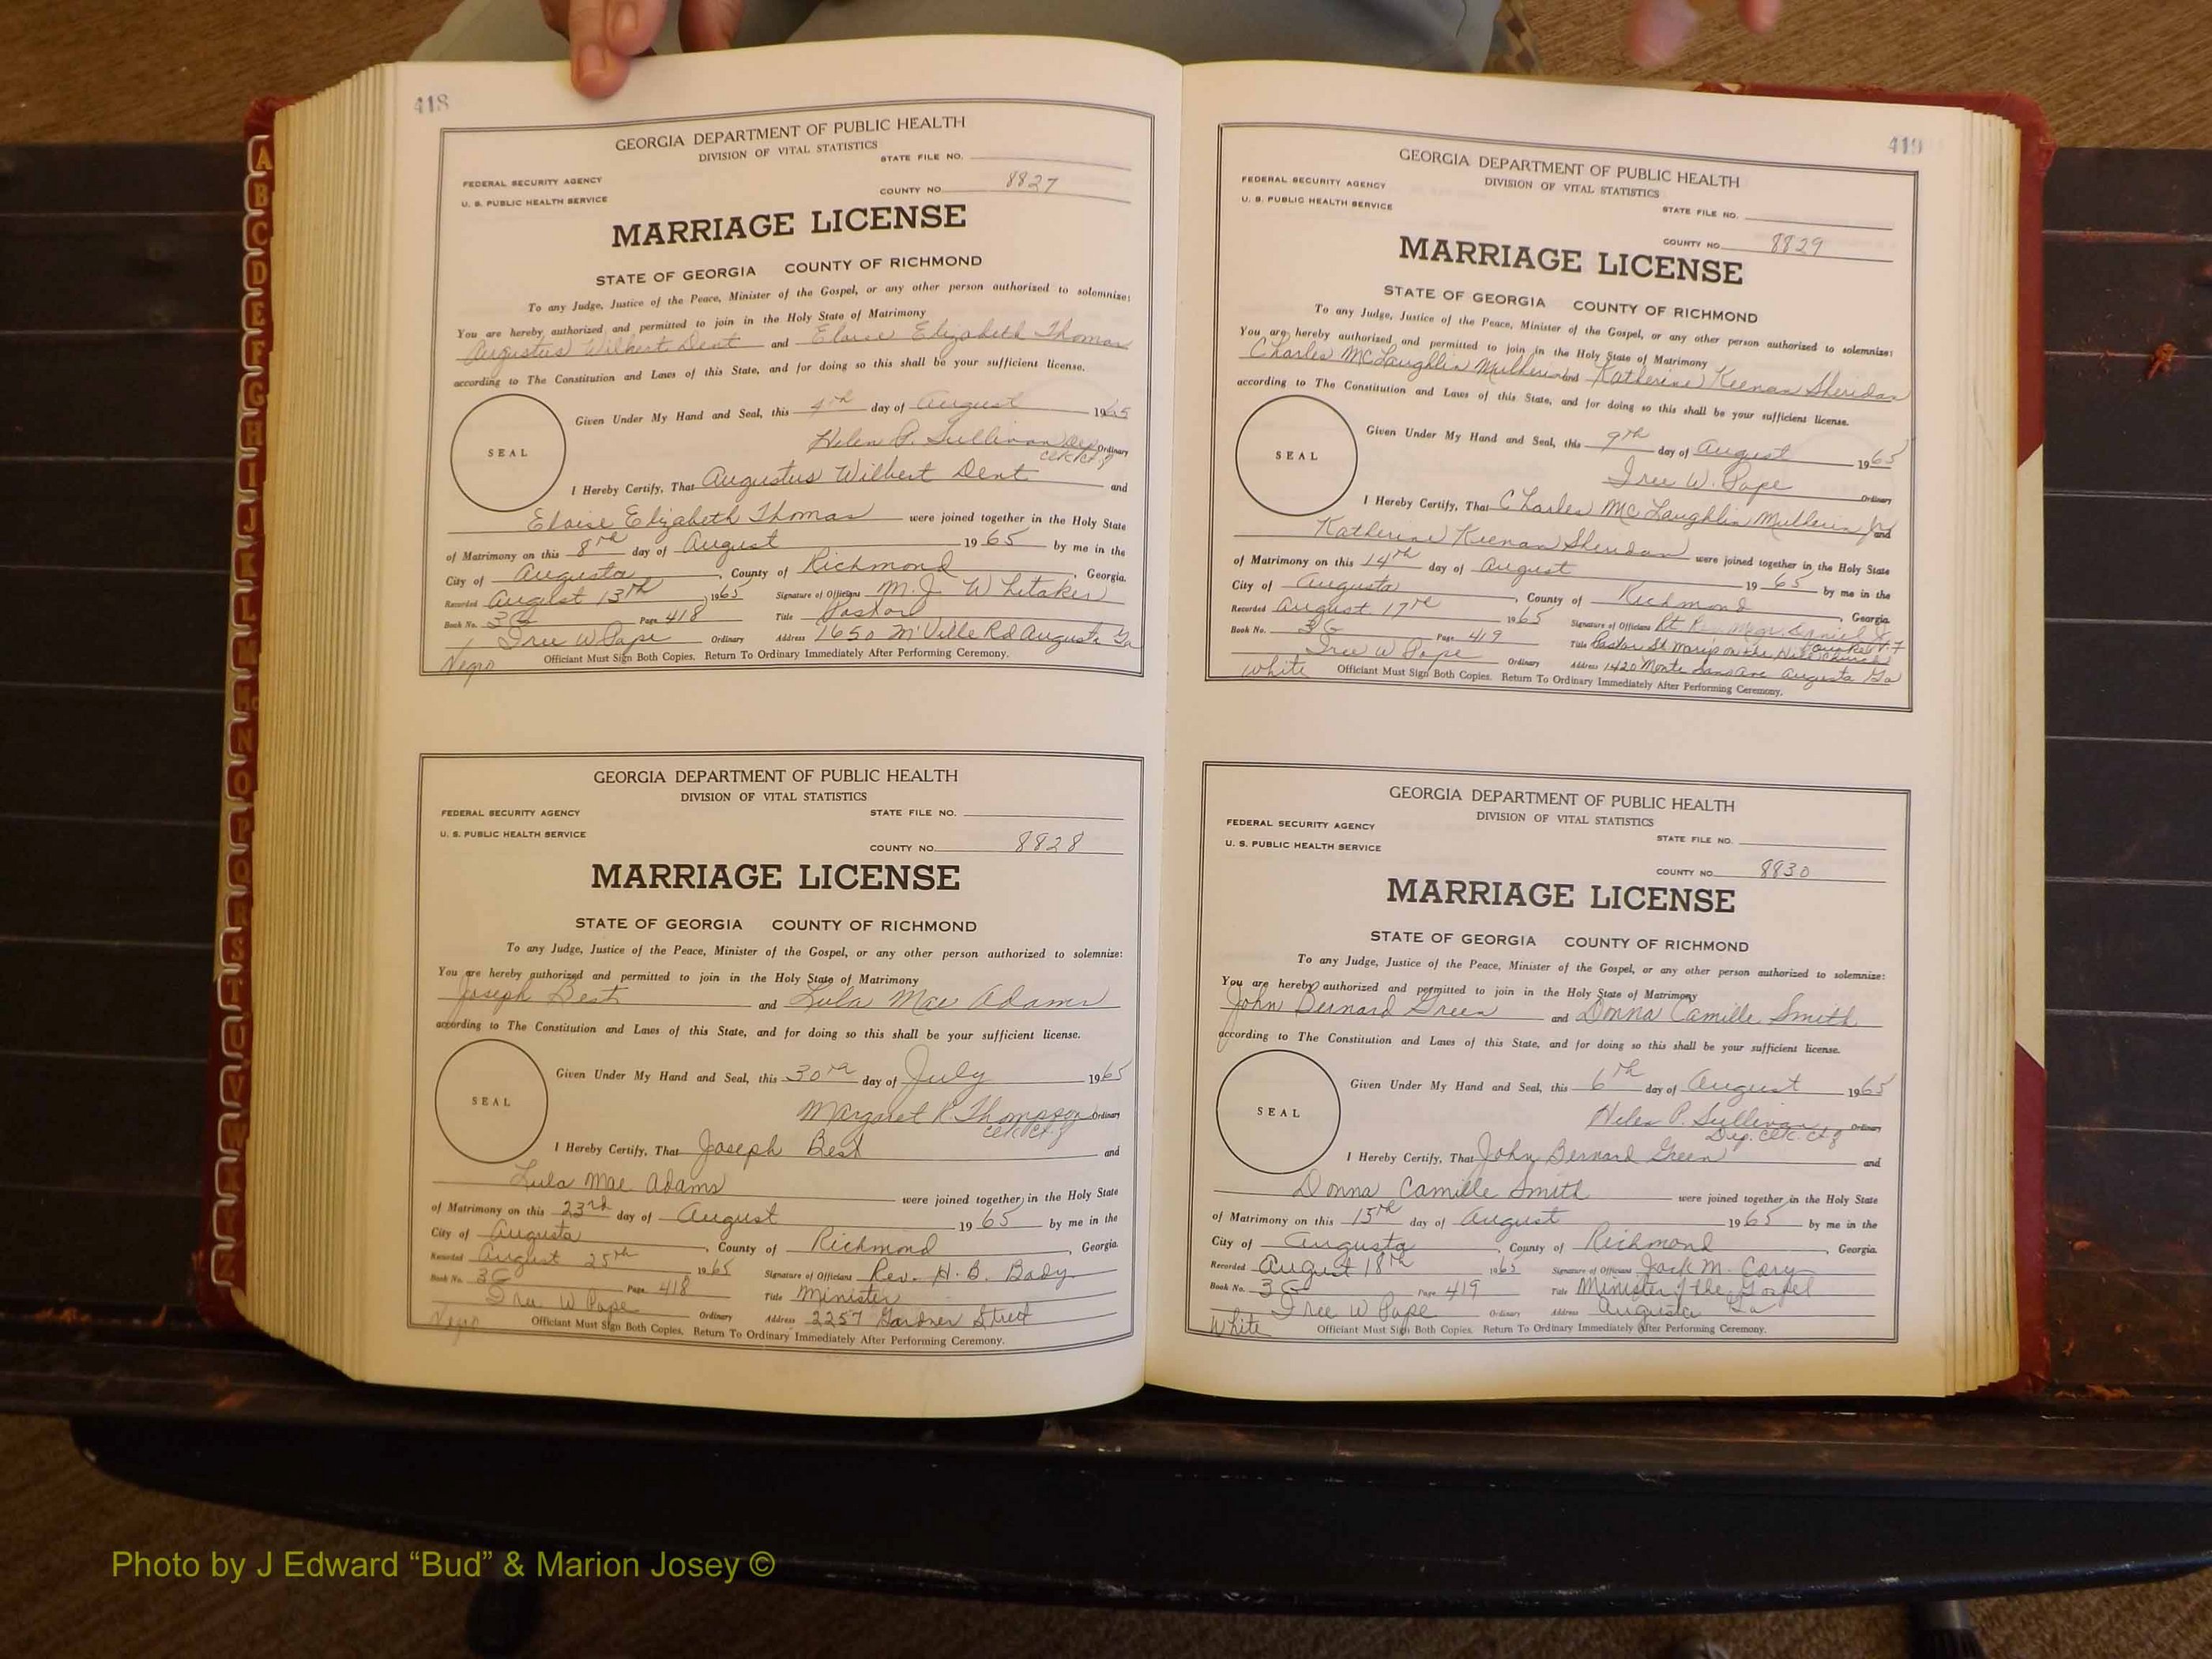 418
GEORGIA DEPARTMENT OF PUBLIC HEALTH
DIVISION OF VITAL STATISTICS
STATE FILE NO.
FEDERAL SECURITY AGENCY
U. S. PUBLIC HEALTH SERVICE
COUNTY NO. 8827
MARRIAGE LICENSE
STATE OF GEORGIA COUNTY OF RICHMOND
To any Judge, Justice of the Peace, Minister of the Gospel, or any other person authorized to solemnize:
You are hereby authorized and permitted to join in the Holy State of Matrimony
Augustus Wilbert Dent and Eloise Elizabeth Thomas
according to The Constitution and Laws of this State, and for doing so this shall be your sufficient license.
SEAL
Given Under My Hand and Seal, this 4th day of August 1965
Helen P. Sullivan Dep Ordinary
I Hereby Certify, That Augustus Wilbert Dent and
Eloise Elizabeth Thomas were joined together in the Holy State
of Matrimony on this 8th day of August 1965 by me in the
City of Augusta, County of Richmond, Georgia.
Recorded August 13th 1965 Signature of Officiant M. J. Whitaker
Book No. 3G Page 418 Title Pastor
W Pope Ordinary Address 1650 M'Ville Rd Augusta Ga
Negro Officiant Must Sign Both Copies. Return To Ordinary Immediately After Performing Ceremony.
GEORGIA DEPARTMENT OF PUBLIC HEALTH
DIVISION OF VITAL STATISTICS
FEDERAL SECURITY AGENCY STATE FILE NO.
U. S. PUBLIC HEALTH SERVICE
COUNTY NO. 8828
MARRIAGE LICENSE
STATE OF GEORGIA COUNTY OF RICHMOND
To any Judge, Justice of the Peace, Minister of the Gospel, or any other person authorized to solemnize:
You are hereby authorized and permitted to join in the Holy State of Matrimony
Joseph Best and Lula Mae Adams
according to The Constitution and Laws of this State, and for doing so this shall be your sufficient license.
SEAL
Given Under My Hand and Seal, this 30th day of July 1965
Margaret R Thompson Ordinary
I Hereby Certify, That Joseph Best and
Lula Mae Adams were joined together in the Holy State
of Matrimony on this 23rd day of August 1965 by me in the
City of Augusta, County of Richmond, Georgia.
Recorded August 25th 1965 Signature of Officiant Rev. H. B. Bady
Book No. 3G Page 418 Title Minister
W Pope Ordinary Address 2257 Gardner Street
Negro Officiant Must Sign Both Copies. Return To Ordinary Immediately After Performing Ceremony.
419
GEORGIA DEPARTMENT OF PUBLIC HEALTH
DIVISION OF VITAL STATISTICS
FEDERAL SECURITY AGENCY
U. S. PUBLIC HEALTH SERVICE
STATE FILE NO.
COUNTY NO. 8829
MARRIAGE LICENSE
STATE OF GEORGIA COUNTY OF RICHMOND
To any Judge, Justice of the Peace, Minister of the Gospel, or any other person authorized to solemnize:
You are hereby authorized and permitted to join in the Holy State of Matrimony
Charles McLaughlin Mulherin and Katherine Keenan Sheridan
according to The Constitution and Laws of this State, and for doing so this shall be your sufficient license.
SEAL
Given Under My Hand and Seal, this 9th day of August 1965
W. Pope Ordinary
I Hereby Certify, That Charles McLaughlin Mulherin Jr and
Katherine Keenan Sheridan were joined together in the Holy State
of Matrimony on this 14th day of August 1965 by me in the
City of Augusta, County of Richmond, Georgia.
Recorded August 17th 1965 Signature of Officiant Rt. Rev. Msgr. Daniel J.
Book No. 3G Page 419 Title Pastor St Mary's on the Hill Church
W Pope Ordinary Address 1420 Monte Sano Ave Augusta Ga
White Officiant Must Sign Both Copies. Return To Ordinary Immediately After Performing Ceremony.
GEORGIA DEPARTMENT OF PUBLIC HEALTH
DIVISION OF VITAL STATISTICS
FEDERAL SECURITY AGENCY
U. S. PUBLIC HEALTH SERVICE
STATE FILE NO.
COUNTY NO. 8830
MARRIAGE LICENSE
STATE OF GEORGIA COUNTY OF RICHMOND
To any Judge, Justice of the Peace, Minister of the Gospel, or any other person authorized to solemnize:
You are hereby authorized and permitted to join in the Holy State of Matrimony
John Bernard Green and Donna Camille Smith
according to The Constitution and Laws of this State, and for doing so this shall be your sufficient license.
SEAL
Given Under My Hand and Seal, this 6th day of August 1965
Helen P. Sullivan Ordinary
Dep. Clk.
I Hereby Certify, That John Bernard Green and
Donna Camille Smith were joined together in the Holy State
of Matrimony on this 15th day of August 1965 by me in the
City of Augusta, County of Richmond, Georgia.
Recorded August 18th 1965 Signature of Officiant Jack M. Cary
Book No. 3G Page 419 Title Minister of the Gospel
W Pope Ordinary Address Augusta Ga
White Officiant Must Sign Both Copies. Return To Ordinary Immediately After Performing Ceremony.
A
B
C
D
E
F
G
H
I
J
K
L
M
Mc
N
O
P
Q
R
S
T
U
V
W
X
Y
Z
Photo by J Edward “Bud” & Marion Josey ©